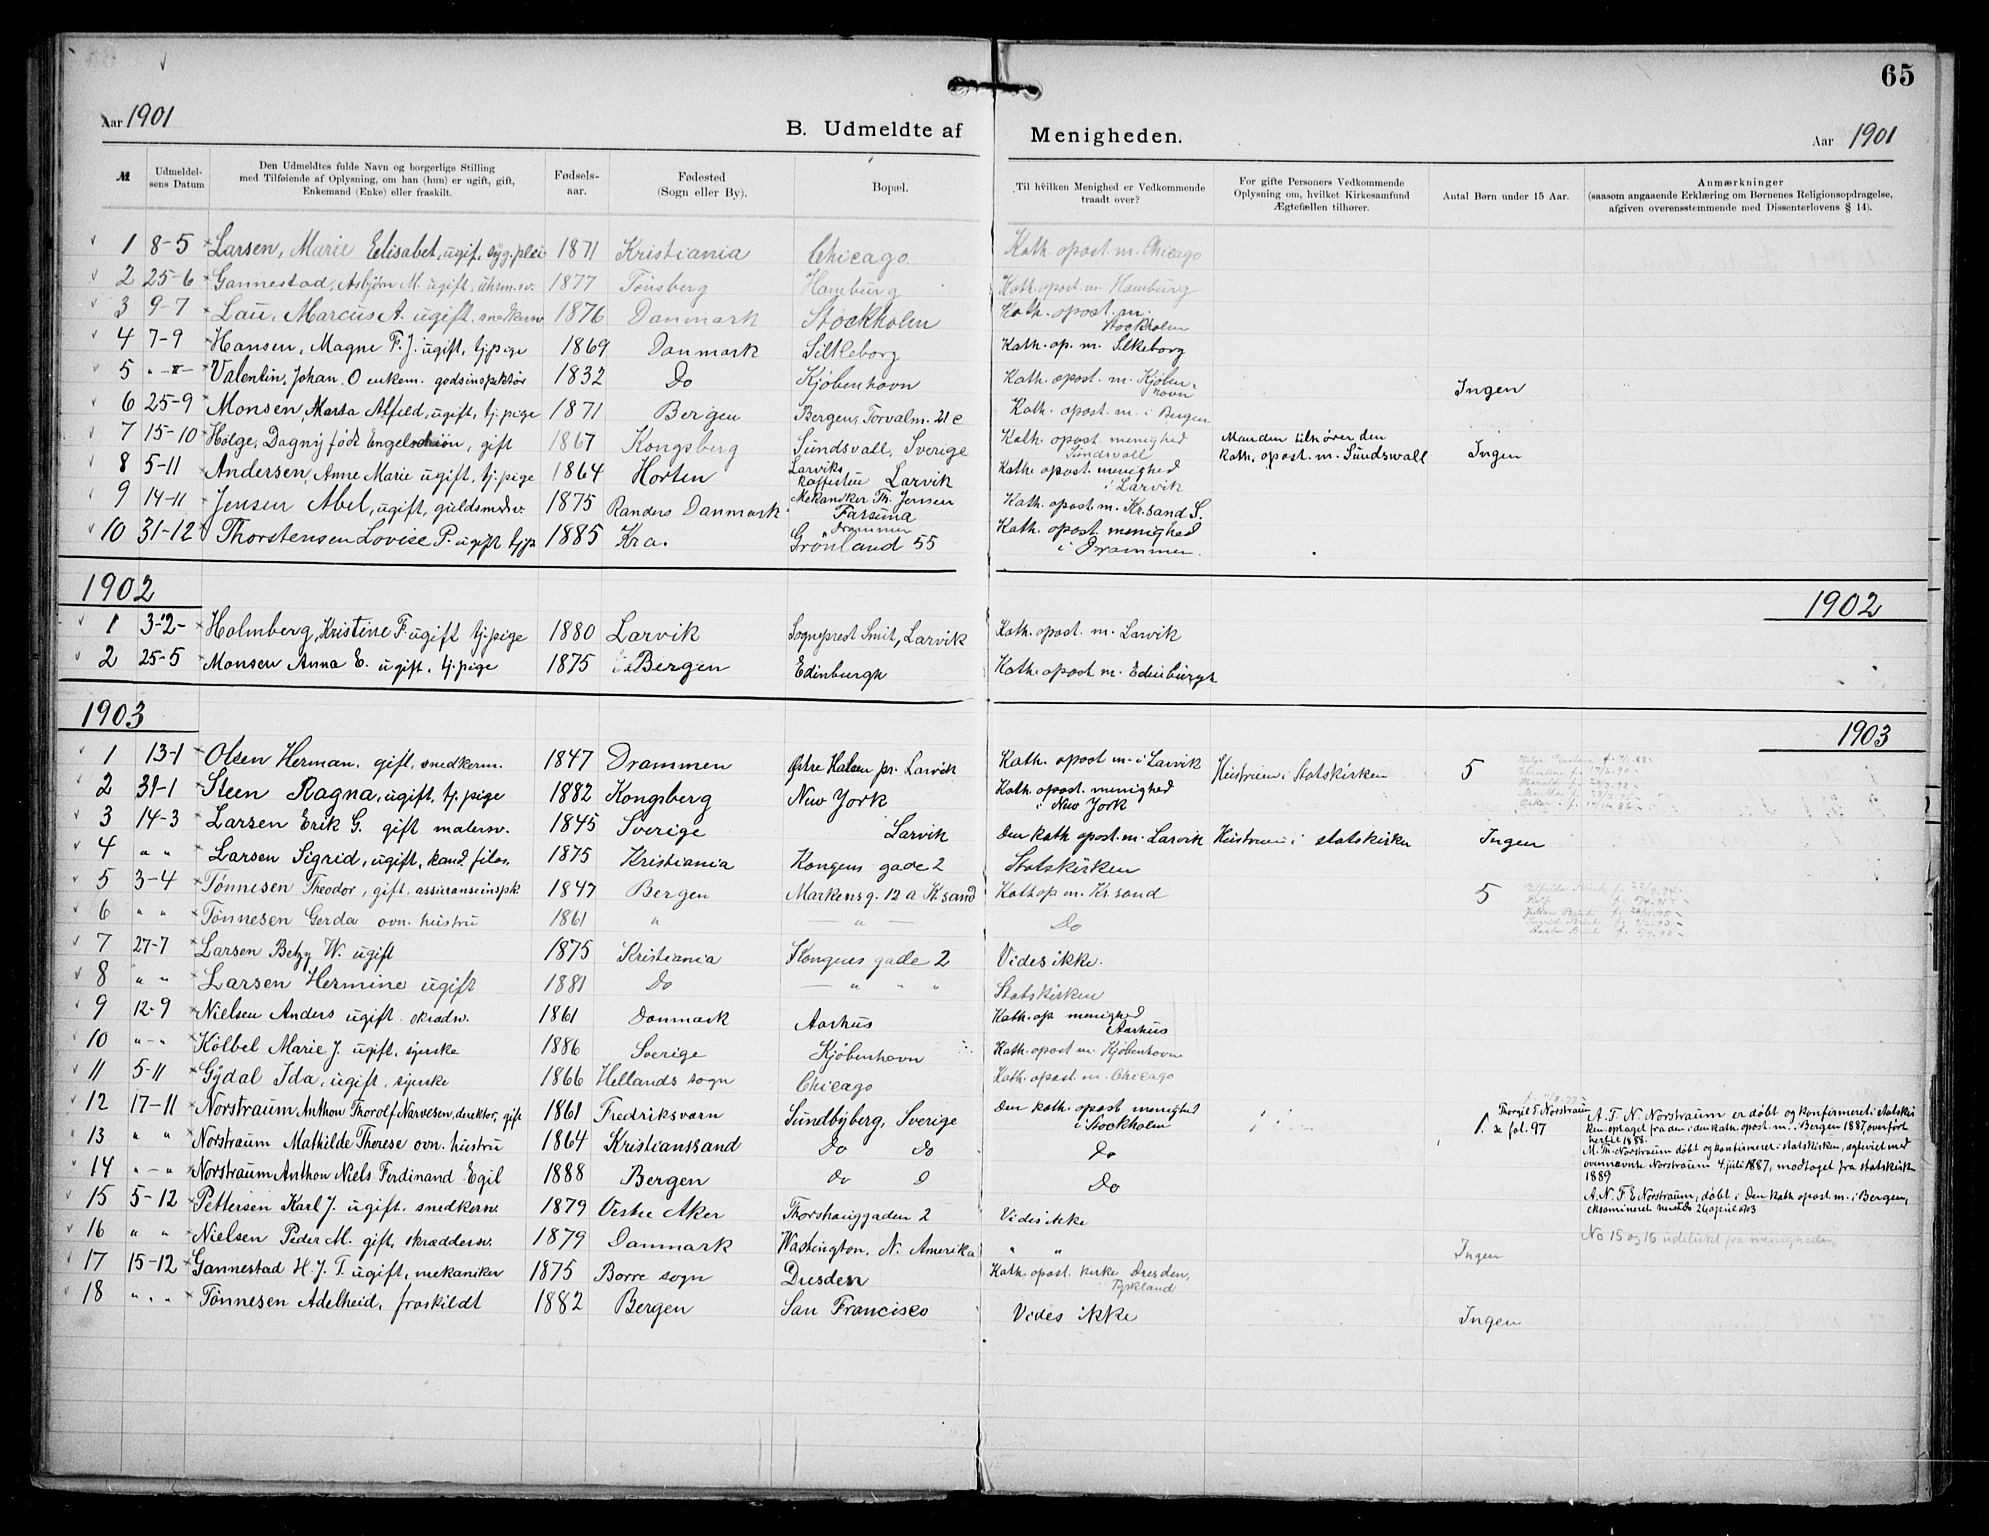 65
Aar 1901
B. Udmeldte af Menigheden.
Aar 1901
№
Udmeldelsens Datum
Den Udmeldtes fulde Navn og borgerlige Stilling
med Tilføiende af Oplysning, om han (hun) er ugift, gift,
Enkemand (Enke) eller fraskilt.
Fødselsaar.
Fødested
(Sogn eller By).
Bopæl.
Til hvilken Menighed er Vedkommende
traadt over?
For gifte Personers Vedkommende
Oplysning om, hvilket Kirkesamfund
Ægtefællen tilhører.
Antal Børn under 15 Aar.
Anmærkninger
(saasom angaaende Erklæring om Børnenes Religionsopdragelse,
afgiven overensstemmende med Dissenterlovens § 14).
1 8-5 Larsen, Marie Elisabet, ugift, syg.plei 1871 Kristiania Chicago Kath. apost. m. Chicago
2 25-6 Gannestad, Asbjörn M. ugift, uhrm.sv. 1877 Tönsberg Hamburg Kath. apost. m. Hamburg
3 9-7 Lau, Marcus A. ugift. snedkersv 1876 Danmark Stockholm Kath. apost. m.
Stockholm
4 7-9 Hansen, Magne F. J. ugift, tj.pige 1869 Danmark Silkeborg Kath. ap. m. Silkeborg
5 " - " - Valentin, Johan. O enkem. godsinspektör 1832 Do Kjöbenhavn Kath. apost. m. Kjöben-
havn Ingen
6 25-9 Monsen, Marta Alfild, ugift, tj.pige 1871 Bergen Bergen, Torvalm. 21 c Kath. apost. m. i Bergen
7 15-10 Holge, Dagny født Engelschiön, gift 1867 Kongsberg Sundsvall, Sverige Kath. apost. menighed
Sundsvall Manden tilhörer den
kath. apost. m. Sundsvall Ingen
8 5-11 Andersen, Anne Marie ugift, tj.pige 1864 Horten Larviks
Larvik Kath. apost. menighed
i Larvik
9 14-11 Jensen Abel, ugift, guldsmedsv. 1875 Randers Danmark Mekaniker Th. Jensen
Farsund Kath. apost. m. Kr.sand S.
10 31-12 Thorstensen Lovise P. ugift tj.p 1885 Kra. Drammen
Grönland 55 Kath. apost. menighed
i Drammen.
1902
1902
1 3-2- Holmberg, Kristine F. ugift tj.pige 1880 Larvik Sogneprest Smit, Larvik Kath. apost. m. Larvik
2 25-5 Monsen Anna E. ugift, tj.pige 1875 Bergen Edinburgh Kath. apost m. Edinburgh
1903
1903
1 13-1 Olsen Herman, gift, snedkerm. 1847 Drammen Östre Halsen pr. Larvik Kath. apost m. i Larvik Hustruen i Statskirken 5
2 31-1 Steen Ragna, ugift, tj.pige 1882 Kongsberg New York Kath. apost. menighed
i New York
3 14-3 Larsen Erik G. gift malersv. 1845 Sverige Larvik Den kath apost. m. Larvik Hustruen i statskirken Ingen
4 " " Larsen Sigrid, ugift, kand. filos. 1875 Kristiania Kongens gade 2 Statskirken
5 3-4 Tönnesen Theodor, gift, assuranseinspk. 1847 Bergen Markensg. 12 a Kr.sand Kath ap m. Kr.sand 5
6 " " Tönnesen Gerda ovn. hustru 1861 " — " — Do
7 27-7 Larsen Betzy W. ugift 1875 Kristiania Kongens gade 2 Vides ikke.
8 " " Larsen Hermine ugift 1881 Do — " " " Statskirken
9 12-9 Nielsen Anders ugift skrædsv. 1861 Danmark Aarhus Kath. ap menighed
Aarhus
10 " - " Kölbel Marie J. ugift, syerske 1886 Sverige Kjöbenhavn Kath. apost m. Kjöbenhavn
11 5-11 Gydal Ida, ugift, syerske 1866 Hellands sogn Chicago Kath. apost. m. Chicago
12 17-11 Norstraum Anthon Thorolf Narvesen, direktör, gift 1861 Fredriksvarn Sundbyberg, Sverige Den kath. apost menighed
i Stockholm Thorgil T. Norstraum
1. se fol. 97 A. T. N. Norstraum er döbt og konfirmeret i statskir
ken optaget fra den i den kath. apost. m. i Bergen 1887 overfört
hertil 1888.
13 " " Norstraum Mathilde Therese ovn. hustru 1864 Kristianssand Do Do Do M. Th. Norstraum döbt og konfirmeret i statskirken, egteviet med
ovennævnte Norstraum 4 juli 1887, modtaget fra statskirken
1889
14 " - " Norstraum Anthon Niels Ferdinand Egil 1888 Bergen do D Do A. N. F. E Norstraum, döbt i Den kath apost. m. i Bergen,
eksamineret 26 april 1903
15 5-12 Pettersen Karl J. ugift. snedkersv. 1879 Vestre Aker Thorshauggaden 2 Vides ikke
16 " " Nielsen Peder M. gift, skræddersv. 1879 Danmark Washington, N. Amerika " " Ingen No 15 og 16 udelukt fra menigheden.
17 15-12 Gannestad H. J. T. ugift, mekaniker 1875 Borre sogn Dresden Kath. apost. kirke Dresden,
Tyskland
18 " . " Tönnesen Adelheid, fraskildt 1882 Bergen San Francisco Vides ikke Ingen